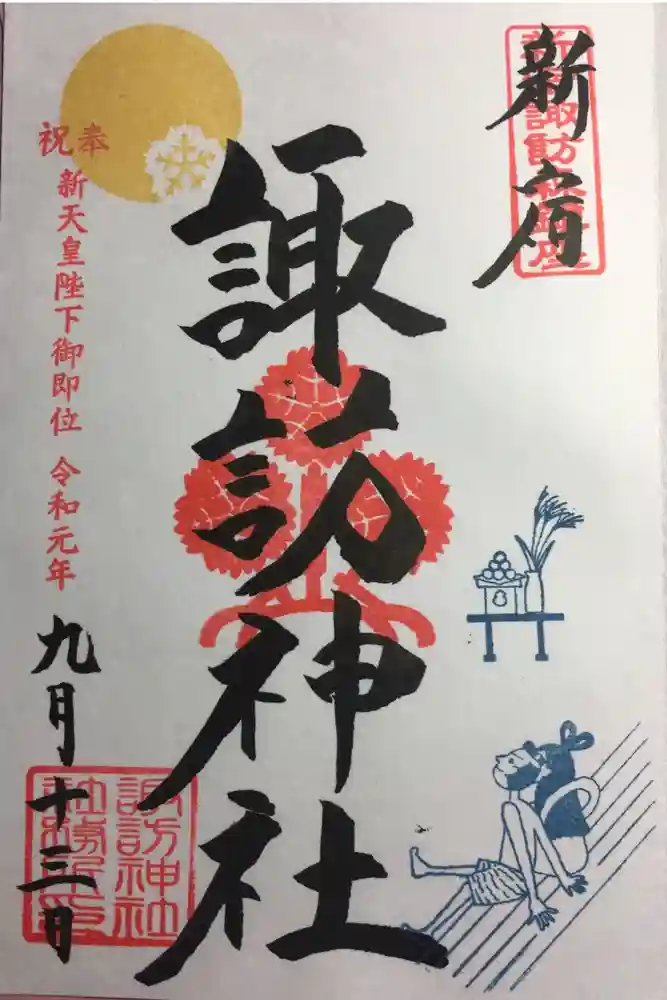 新宿
新宿諏訪森鎮座
諏訪神社
奉祝
新天皇陛下御即位 令和元年
九月十三日
諏訪神社